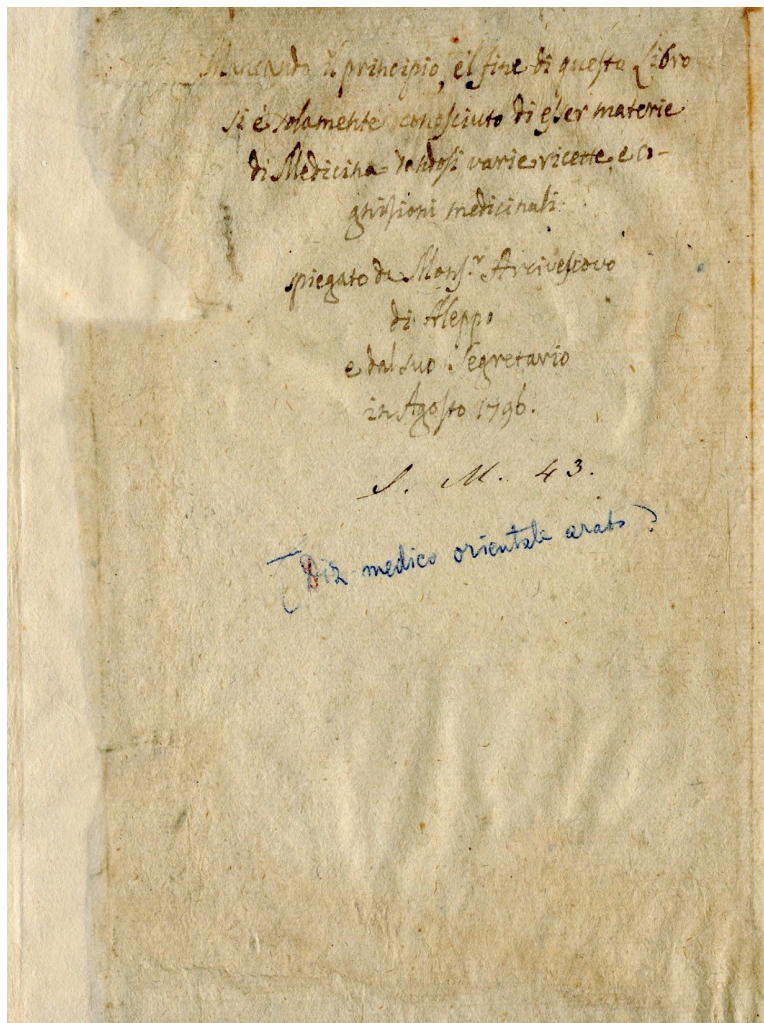 Mancando il principio, e il fine di questo Libro
si è solamente conosciuto di esser materie
di Medicina dandosi varie ricette, e co-
gnisioni medicinali.
spiegato da Mons.r Arcivescovo
di Aleppo
e dal suo Segretario
in Agosto 1796.
S. M. 43.
(Diz medico orientale arabo)